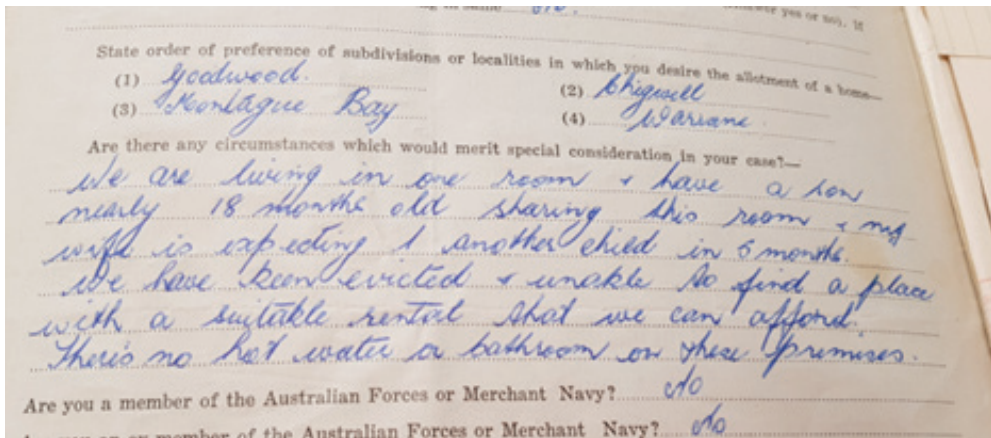 yes or no). If
State order of preference of subdivisions or localities in which you desire the allotment of a home—
(1) Goodwood. (2) Chigwell
(3) Montague Bay (4) Warrane.
Are there any circumstances which would merit special consideration in your case?—
We are living in one room + have a son
nearly 18 months old sharing this room + my
wife is expecting another child in 5 months.
We have been evicted + unable to find a place
with a suitable rental that we can afford.
There's no hot water or bathroom on these premises.
Are you a member of the Australian Forces or Merchant Navy? No
member of the Australian Forces or Merchant Navy? No